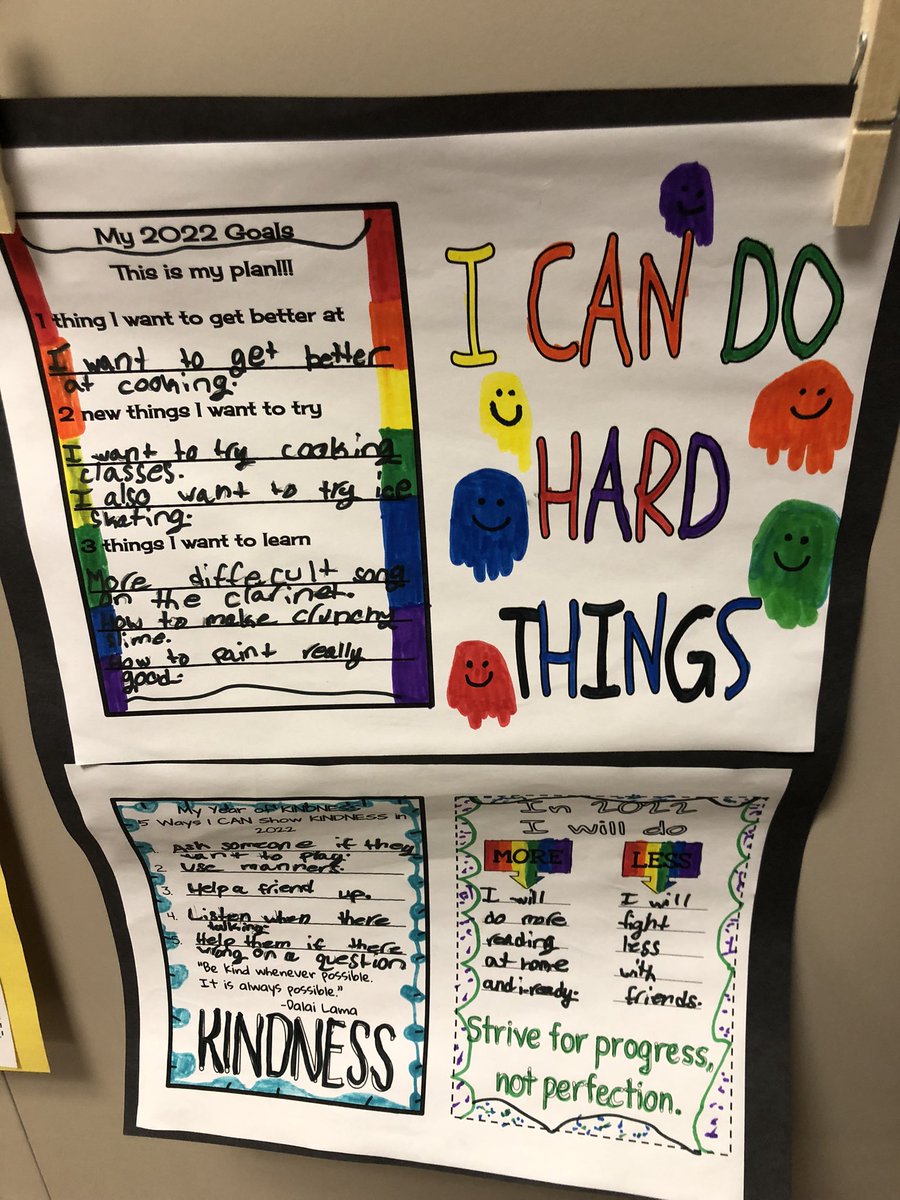 My 2022 Goals
This is my plan!!!
1 thing I want to get better at
I want to get better
at cooking.
2 new things I want to try
I want to try cooking
classes.
I also want to try ice
skating.
3 things I want to learn
More differcult song
on the clarinet.
How to make crunchy
slime.
How to paint really
good.
I CAN DO
HARD
THINGS
My Year of KINDNESS
5 Ways I CAN Show KINDNESS in
2022
1. Ask someone if they
want to play.
2. Use manners.
3. Help a friend up.
4. Listen when there
talking.
5. Help them if there
wrong on a question
"Be kind whenever possible.
It is always possible."
-Dalai Lama
KINDNESS
In 2022
I will do
MORE
I will
do more
reading
at home
and i-ready.
LESS
I will
fight
less
with
friends.
Strive for progress,
not perfection.